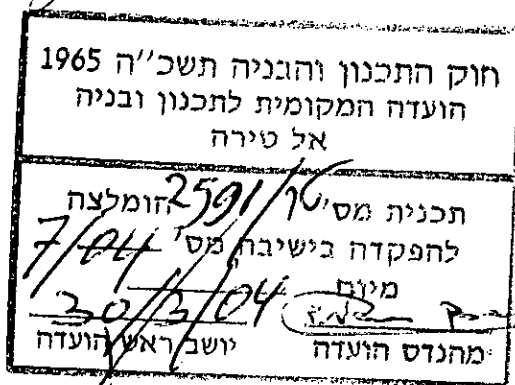 חוק התכנון והבניה תשכ''ה 1965
הועדה המקומית לתכנון ובניה
אל טירה
תכנית מס' 2591/16 הומלצה
להפקדה בישיבה מס' 7/04
מיום 30/3/04
מהנדס הועדה יושב ראש הועדה